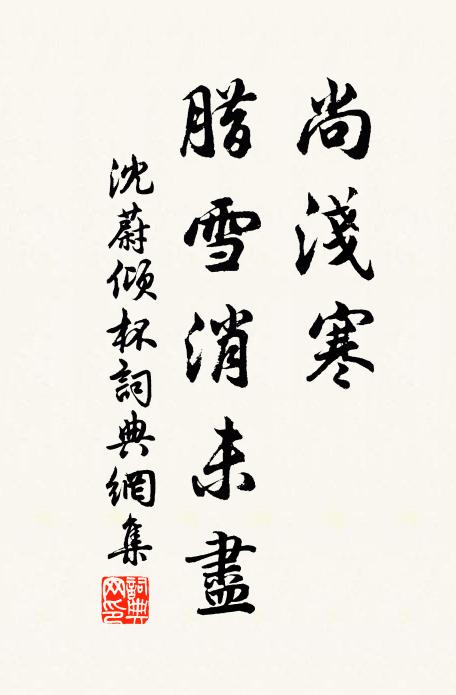 尚淺寒
腊雪消未盡
沈蔚傾杯詞典網集
詞典網印